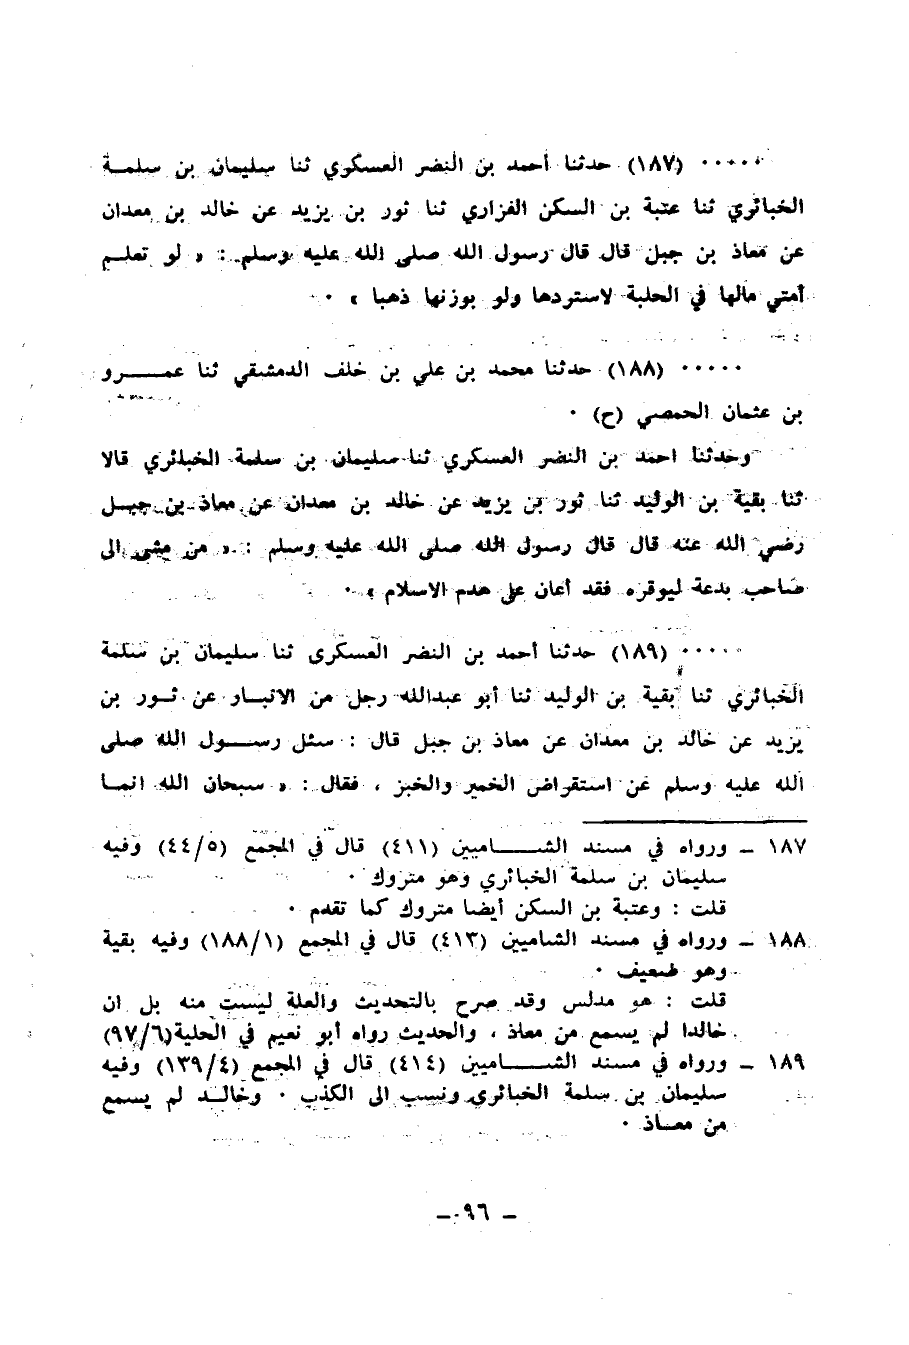 ..... (١٨٧) حدثنا أحمد بن النضر العسكري ثنا سليمان بن سلمــة
الخبائري ثنا عتبة بن السكن الفزاري ثنا ثور بن يزيد عن خالد بن معدان
عن معاذ بن جبل قال قال رسول الله صلى الله عليه وسلم : « لو تعلــم
أمتي مالها في الحلبة لاستردها ولو بوزنها ذهبا » ٠
..... (١٨٨) حدثنا محمد بن علي بن خلف الدمشقي ثنا عمـــــرو
بن عثمان الحمصي (ح) ٠
وحدثنا احمد بن النضر العسكري ثنا سليمان بن سلمة الخبائري قالا
ثنا بقية بن الوليد ثنا ثور بن يزيد عن خالد بن معدان عن معاذ بن جبــل
رضي الله عنه قال قال رسول الله صلى الله عليه وسلم : « من مشى الى
صاحب بدعة ليوقره فقد أعان على هدم الاسلام » ٠
..... (١٨٩) حدثنا أحمد بن النضر العسكرى ثنا سليمان بن سلمة
الخبائري ثنا بقية بن الوليد ثنا أبو عبدالله رجل من الانبــار عن ثــور بن
يزيد عن خالد بن معدان عن معاذ بن جبل قال : سئل رســــول الله صلى
الله عليه وسلم عن استقراض الخمير والخبز ، فقال : « سبحان الله انمــا
١٨٧ ــ ورواه في مسند الشـــــاميين (٤١١) قال في المجمع (٤٤/٥) وفيه
سليمان بن سلمة الخبائري وهو متروك ٠
قلت : وعتبة بن السكن أيضا متروك كما تقدم ٠
١٨٨ ــ ورواه في مسند الشاميين (٤١٣) قال في المجمع (١٨٨/١) وفيه بقية
وهو ضعيف ٠
قلت : هو مدلس وقد صرح بالتحديث والعلة ليست منه بل ان
خالدا لم يسمع من معاذ ، والحديث رواه أبو نعيم في الحلية(٩٧/٦)
١٨٩ ــ ورواه في مسند الشـــــاميين (٤١٤) قال في المجمع (١٣٩/٤) وفيه
سليمان بن سلمة الخبائري ونسب الى الكذب ٠ وخالــد لم يسمع
من معــاذ ٠
ــ ٩٦ ــ